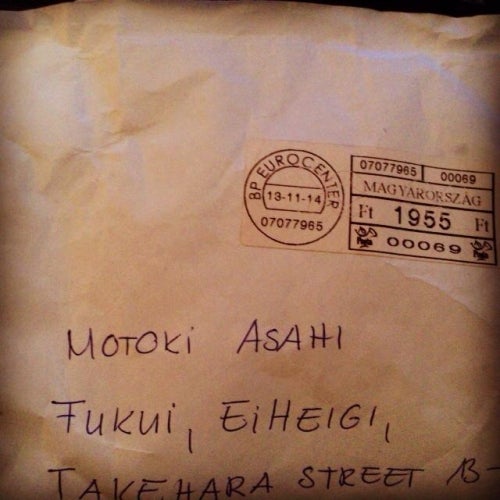 BP EUROCENTER
13-11-14
07077965
07077965 00069
MAGYARORSZÁG
Ft 1955 Ft
00069
MOTOKi ASAHI
FUKUI, EiHEIGI,
TAKEHARA STREET 13-